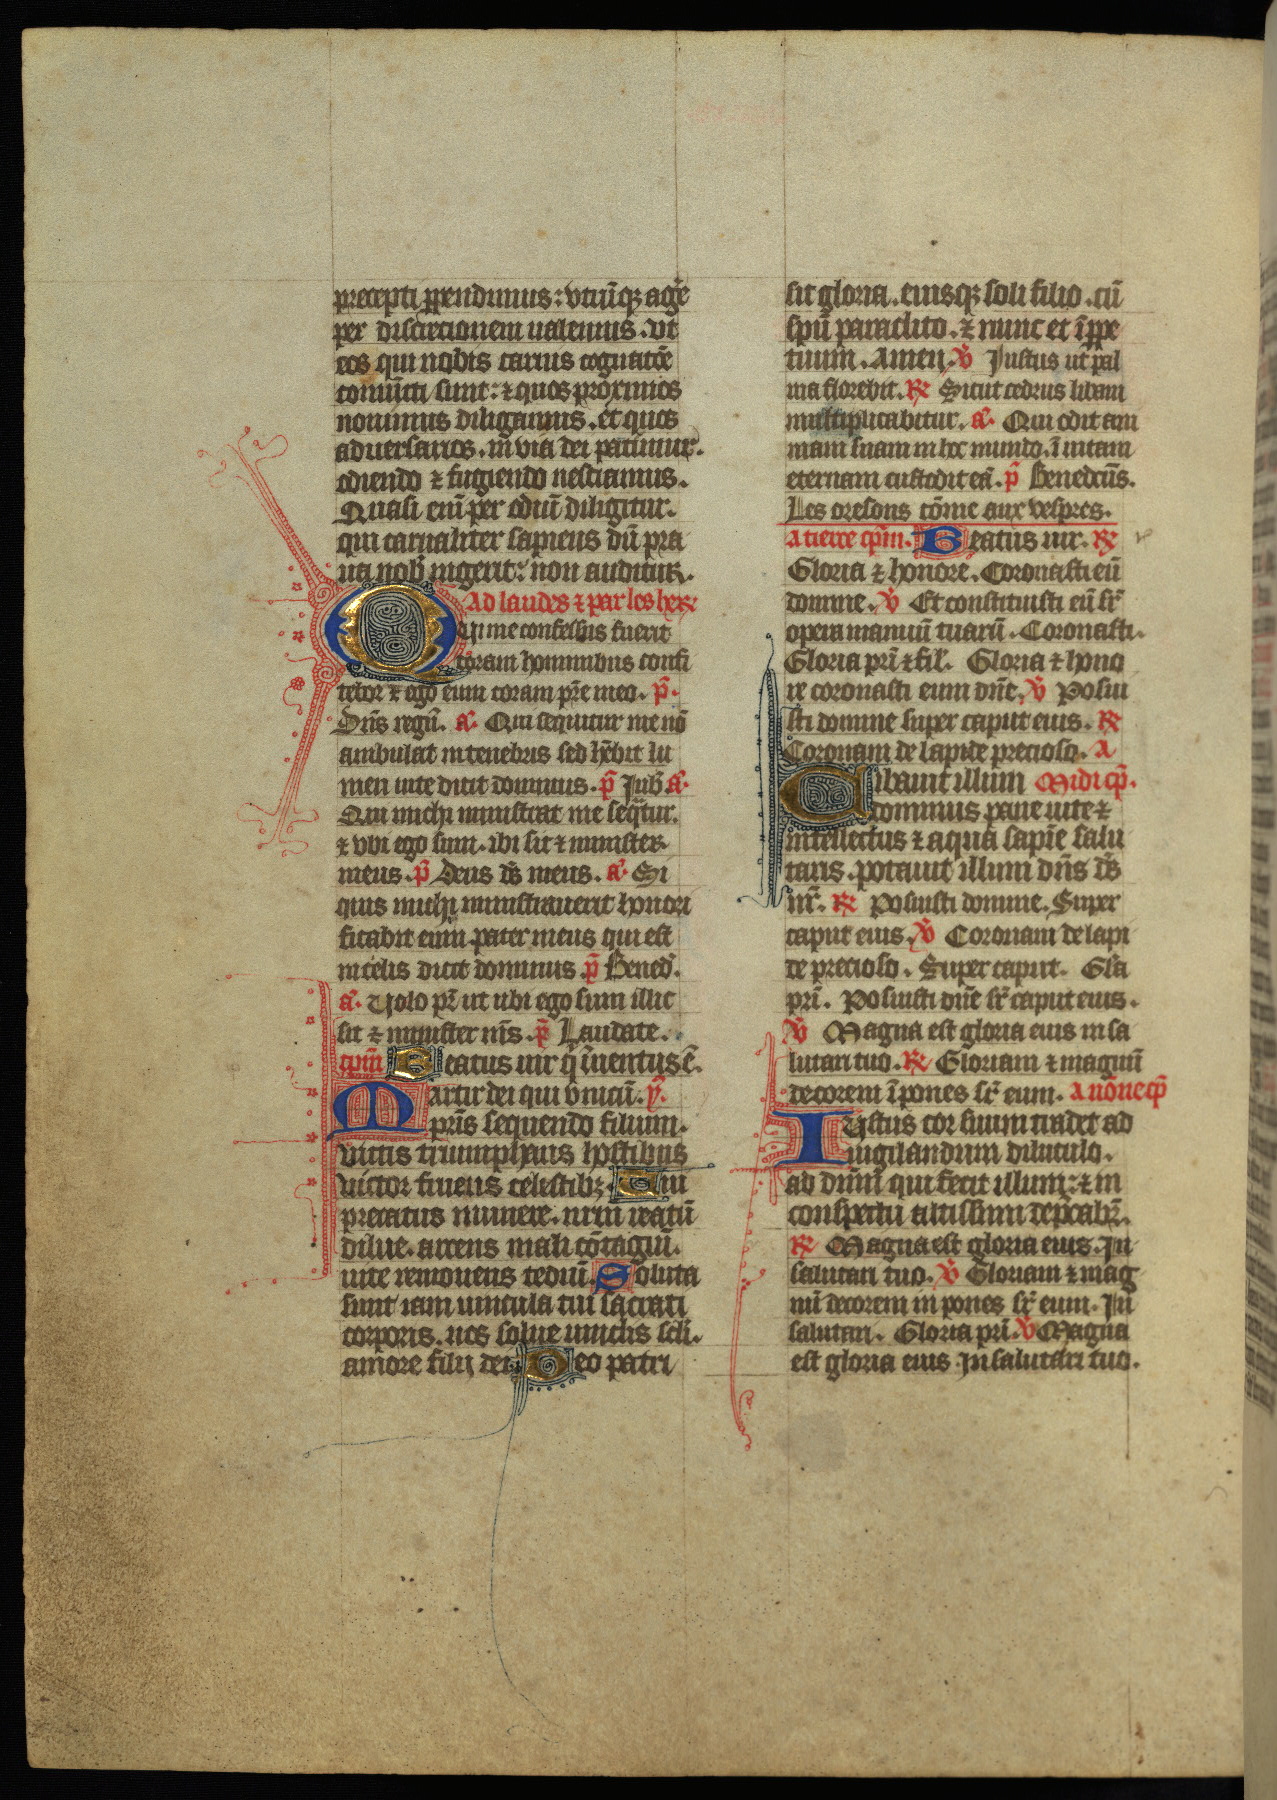 precepti ꝑpendimus: vtrūqꝫ agē
per discretionem ualemus. vt
eos qui nobis carnis cognatōe
coniūcti sunt: ⁊ quos proximos
nouimus diligamus. et quos
aduersarios. in via dei patimur.
odiendo ⁊ fugiendo nesciamus.
Quasi enī per odiū diligitur.
qui carnaliter sapiens dū pra
ua nob̄ ingerit: non auditur.
Ad laudes ⁊ par les heres
Qui me confessus fuerit
coram hominibus confi
tebor ⁊ ego eum coram pr̄e meo. p̄.
Dn̄s regn̄. a. Qui sequitur me nō
ambulat in tenebris sed hēbit lu
men uite dicit dominus. p̄ Jub̄. a.
Qui michi ministrat me seq̄tur.
⁊ vbi ego sum. ibi sit ⁊ minister
meus. p̄ Deus ds̄ meus. a. Si
quis michi ministrauerit honori
ficabit eum pater meus qui est
in celis dicit dominus. p̄ Bened̄.
a. Uolo pr̄ ut ubi ego sum illic
sit ⁊ minister m̄s. p̄ Laudate.
cpm̄ Beatus uir q̄ inuentus ē.
Martir dei qui vnicū. y.
pr̄is sequendo filium.
victis triumphans hostibus
victor fruens celestibꝫ. Tui
precatus munere. nr̄m reatū
dilue. arcens mali cōtagiū.
uite remouens tediū. Soluta
sunt iam uincula tui sacrati
corporis. nos solue uinclis scl̄i.
amore filij dei. Deo patri
sit gloria. eiusqꝫ soli filio. cū
spū paraclito. ⁊ nunc et īꝑpe
tuum. amen. v̄ Justus ut pal
ma florebit. ℞ Sicut cedrus libani
multiplicabitur. a. Qui odit ani
mam suam in hoc mundo. ī uitam
eternam custodit eā. p̄ Benedc̄us.
Les oresons cōme aux vespres.
A tierce cp̄m. Beatus uir. ℞
Gloria ⁊ honore. Coronasti eū
domine. v̄ Et constituisti eū sr̄
opera manuū tuarū. Coronasti.
Gloria pr̄i ⁊ fil'. Gloria ⁊ hono
re coronasti eum dn̄e. v̄ Posui
sti domine super caput eius. ℞
Coronam de lapide precioso. A
Cibauit illum Midi cp̄.
dominus pane uite ⁊
intellectus ⁊ aqua sapīe salu
taris. potauit illum dn̄s ds̄
nr̄. ℞ Posuisti domine. Super
caput eius. v̄ Coronam de lapi
de precioso. Super caput. Glā
pr̄i. Posuisti dn̄e sr̄ caput eius.
v̄ Magna est gloria eius in sa
lutari tuo. ℞ Gloriam ⁊ magnū
decorem īpones sr̄ eum. A nōne cp̄
Iustus cor suum tradet ad
uigilandum diluculo.
ad dn̄m qui fecit illum: ⁊ in
conspectu altissimi dep̄cabr̄.
℞ Magna est gloria eius. In
salutari tuo. v̄ Gloriam ⁊ mag
nū decorem in pones sr̄ eum. In
salutari. Gloria pr̄i. v̄ Magna
est gloria eius in salutari tuo.